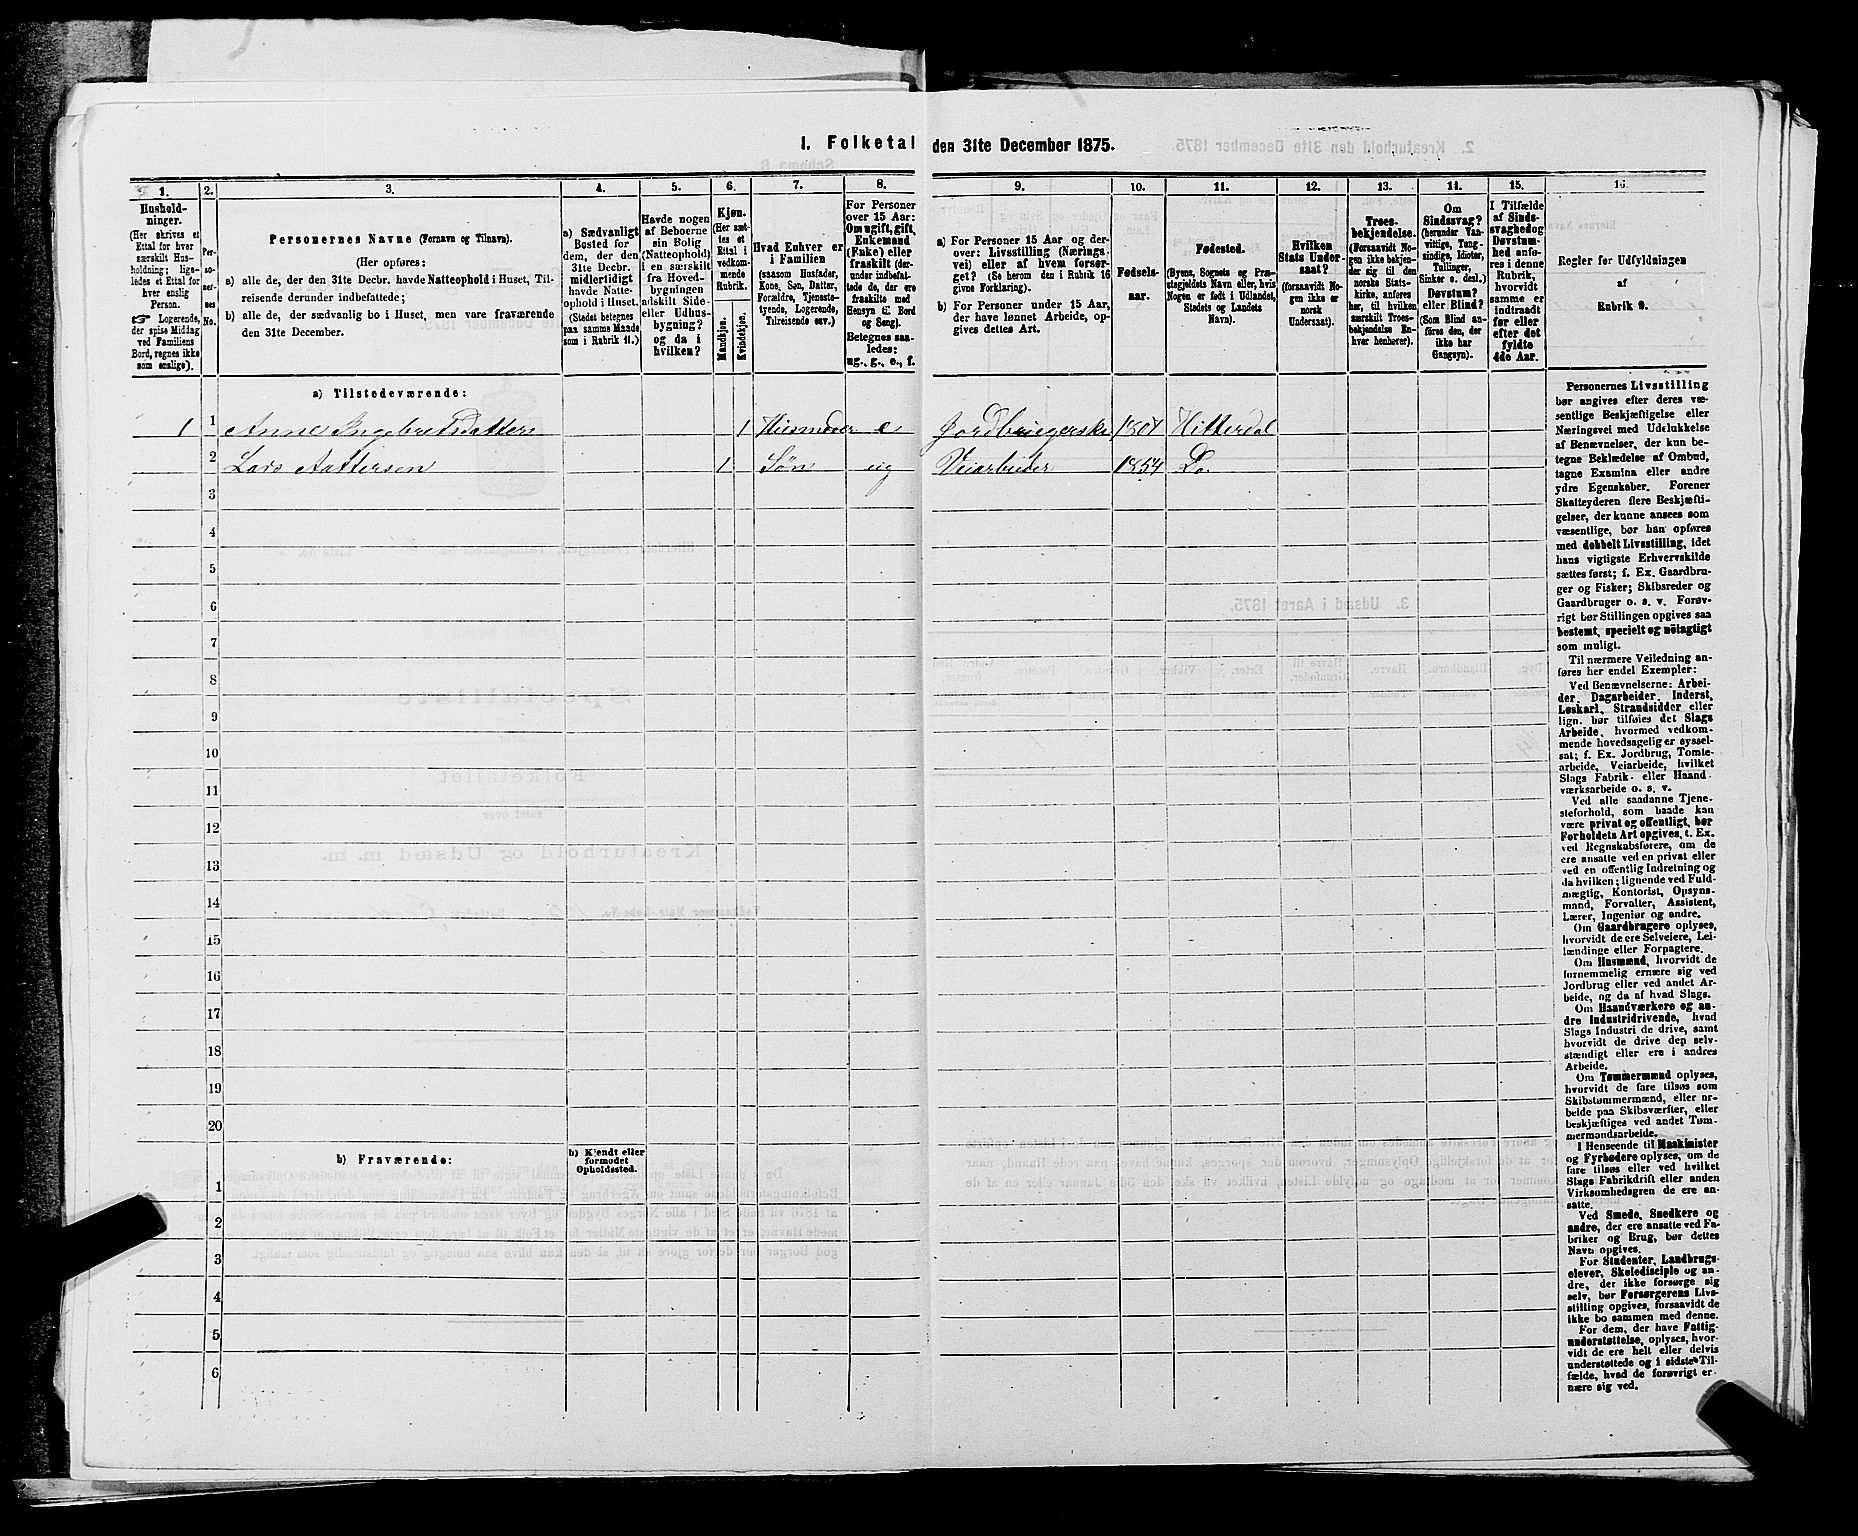 1. Folketal den 31te December 1875.
1. 2. 3. 4. 5. 6. 7. 8. 9. 10. 11. 12. 13. 14. 15. 16.
Hushold-
ninger.
(Her skrives et
Ettal for hver
særskilt Hus-
holdning; lige-
ledes et Ettal for
hver enslig
Person.
☞ Logerende,
der spise Middag
ved Familiens
Bord, regnes ikke
som enslige).
Per-
so-
ner-
nes
No.
Personernes Navne (Fornavn og Tilnavn).
(Her opføres:
a) alle de, der den 31te Decbr. havde Natteophold i Huset, Til-
reisende derunder indbefattede;
b) alle de, der sædvanlig bo i Huset, men vare fraværende
den 31te December.
a) Sædvanligt
Bosted for
dem, der den
31te Decbr.
midlertidigt
havde Natte-
ophold i Huset.
(Stedet betegnes
paa samme Maade
som i Rubrik 11.)
Havde nogen
af Beboerne
sin Bolig
(Natteophold)
i en særskilt
fra Hoved-
bygningen
adskilt Side-
eller Udhus-
bygning?
og da i
hvilken?
Kjøn.
(Her sæt-
tes et
Ettal i
vedkom-
mende
Rubrik.
Mandkjøn.
Kvindekjøn.
Hvad Enhver er
i Familien
(saasom Husfader,
Kone, Søn, Datter,
Forældre, Tjeneste-
tyende, Logerende,
Tilreisende osv.)
For Personer
over 15 Aar:
Om ugift, gift,
Enkemand
(Enke) eller
fraskilt (der-
under indbefat-
tede de, der ere
fraskilte med
Hensyn til Bord
og Seng).
Betegnes saa-
ledes:
ug., g., e., f.
a) For Personer 15 Aar og der-
over: Livsstilling (Nærings-
vei) eller af hvem forsør-
get? (Se herom den i Rubrik 16
givne Forklaring).
b) For Personer under 15 Aar,
der have lønnet Arbeide, op-
gives dettes Art.
Fødsels-
aar.
Fødested.
(Byens, Sognets og Præ-
stegjeldets Navn eller, hvis
Nogen er født i Udlandet,
Stedets og Landets
Navn).
Hvilken
Stats Under-
saat?
(forsaavidt No-
gen ikke er
norsk
Undersaat).
Troes-
bekjendelse.
(Forsaavidt No-
gen ikke bekjen-
der sig til den
norske Stats-
kirke, anføres
her, til hvilken
særskilt Troes-
bekjendelse En-
hver henhører).
Om
Sindssvag?
(herunder Van-
vittige, Tung-
sindige, Idioter,
Tullinger,
Sinker o. desl.)
Døvstum?
eller Blind?
(Som Blind an-
føres den, der
ikke har
Gangsyn).
I Tilfælde
af Sinds-
svaghed og
Døvstum-
hed anfø-
res i denne
Rubrik,
hvorvidt
samme er
indtraadt
før eller
efter det
fyldte
4de Aar.
Regler for Udfyldningen
af
Rubrik 9.
a) Tilstedeværende:
1 1 Anne Ingebretsdatter 1 Huusmoder e Jordbrugerske 1801 Hitterdal
2 Lars Aattersen 1 Søn ug Veiarbeider 1854 Do.
3
4
5
6
7
8
9
10
11
12
13
14
15
16
17
18
19
20
b) Fraværende:
b) Kjendt eller
formodet
Opholdssted.
1
2
3
4
5
6
Personernes Livsstilling
bør angives efter deres væ-
sentlige Beskjæftigelse eller
Næringsvei med Udelukkelse
af Benævnelser, der kun be-
tegne Beklædelse af Ombud,
tagne Examina eller andre
ydre Egenskaber. Forener
Skatteyderen flere Beskjæfti-
gelser, der kunne ansees som
væsentlige, bør han opføres
med dobbelt Livsstilling, idet
hans vigtigste Erhvervskilde
sættes først; f. Ex. Gaardbru-
ger og Fisker; Skibsreder og
Gaardbruger o. s. v. Forøv-
rigt bør Stillingen opgives saa
bestemt, specielt og nöiagtigt
som muligt.
Til nærmere Veiledning an-
føres her endel Exempler:
Ved Benævnelserne: Arbei-
der, Dagarbeider, Inderst,
Løskarl, Strandsidder eller
lign. bør tilføies det Slags
Arbeide, hvormed vedkom-
mende hovedsagelig er syssel-
sat; f. Ex. Jordbrug, Tomte-
arbeide, Veiarbeide, hvilket
Slags Fabrik- eller Haand-
værksarbeide o. s. v.
Ved alle saadanne Tjene-
steforhold, som baade kan
være privat og offentligt, bør
Forholdets Art opgives, t. Ex.
ved Regnskabsførere, om de
ere ansatte ved en privat eller
ved en offentlig Indretning og
da hvilken; lignende ved Fuld-
mægtig, Kontorist, Opsyns-
mand, Forvalter, Assistent,
Lærer, Ingeniør og andre.
Om Gaardbrugere oplyses,
hvorvidt de ere Selveiere, Lei-
lændinge eller Forpagtere.
Om Husmænd, hvorvidt de
fornemmelig ernære sig ved
Jordbrug eller ved andet Ar-
beide, og da af hvad Slags.
Om Haandværkere og an-
dre Industridrivende, hvad
Slags Industri de drive, samt
hvorvidt de drive den selv-
stændigt eller ere i andres
Arbeide.
Om Tømmermænd oplyses,
hvorvidt de fare tilsøs som
Skibstømmermænd, eller ar-
beide paa Skibsværfter, eller
beskjæftiges ved andet Tøm-
mermandsarbeide.
I Henseende til Maskinister
og Fyrbødere oplyses, om de
fare tilsøs eller ved hvilket
Slags Fabrikdrift eller anden
Virksomhedsgren de ere an-
satte.
Ved Smede, Snedkere og
andre, der ere ansatte ved Fa-
briker og Brug, bør dettes
Navn opgives.
For Studenter, Landbrugs-
elever, Skoledisciple og an-
dre, der ikke forsørge sig
selv, bør Forsørgerens Livs-
stilling opgives, forsaavidt de
ikke bo sammen med denne.
For dem, der have Fattig-
understøttelse, oplyses, hvor-
vidt de ere helt eller delvis
understøttede og i sidste Til-
fælde, hvad de forøvrigt er-
nære sig ved.